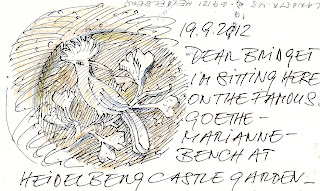 D-69121 HEIDELBERG
19.9.2012
DEAR BRIDGET
I'M SITTING HERE
ON THE FAMOUS
GOETHE-
MARIANNE-
BENCH AT
HEIDELBERG CASTLE GARDEN_